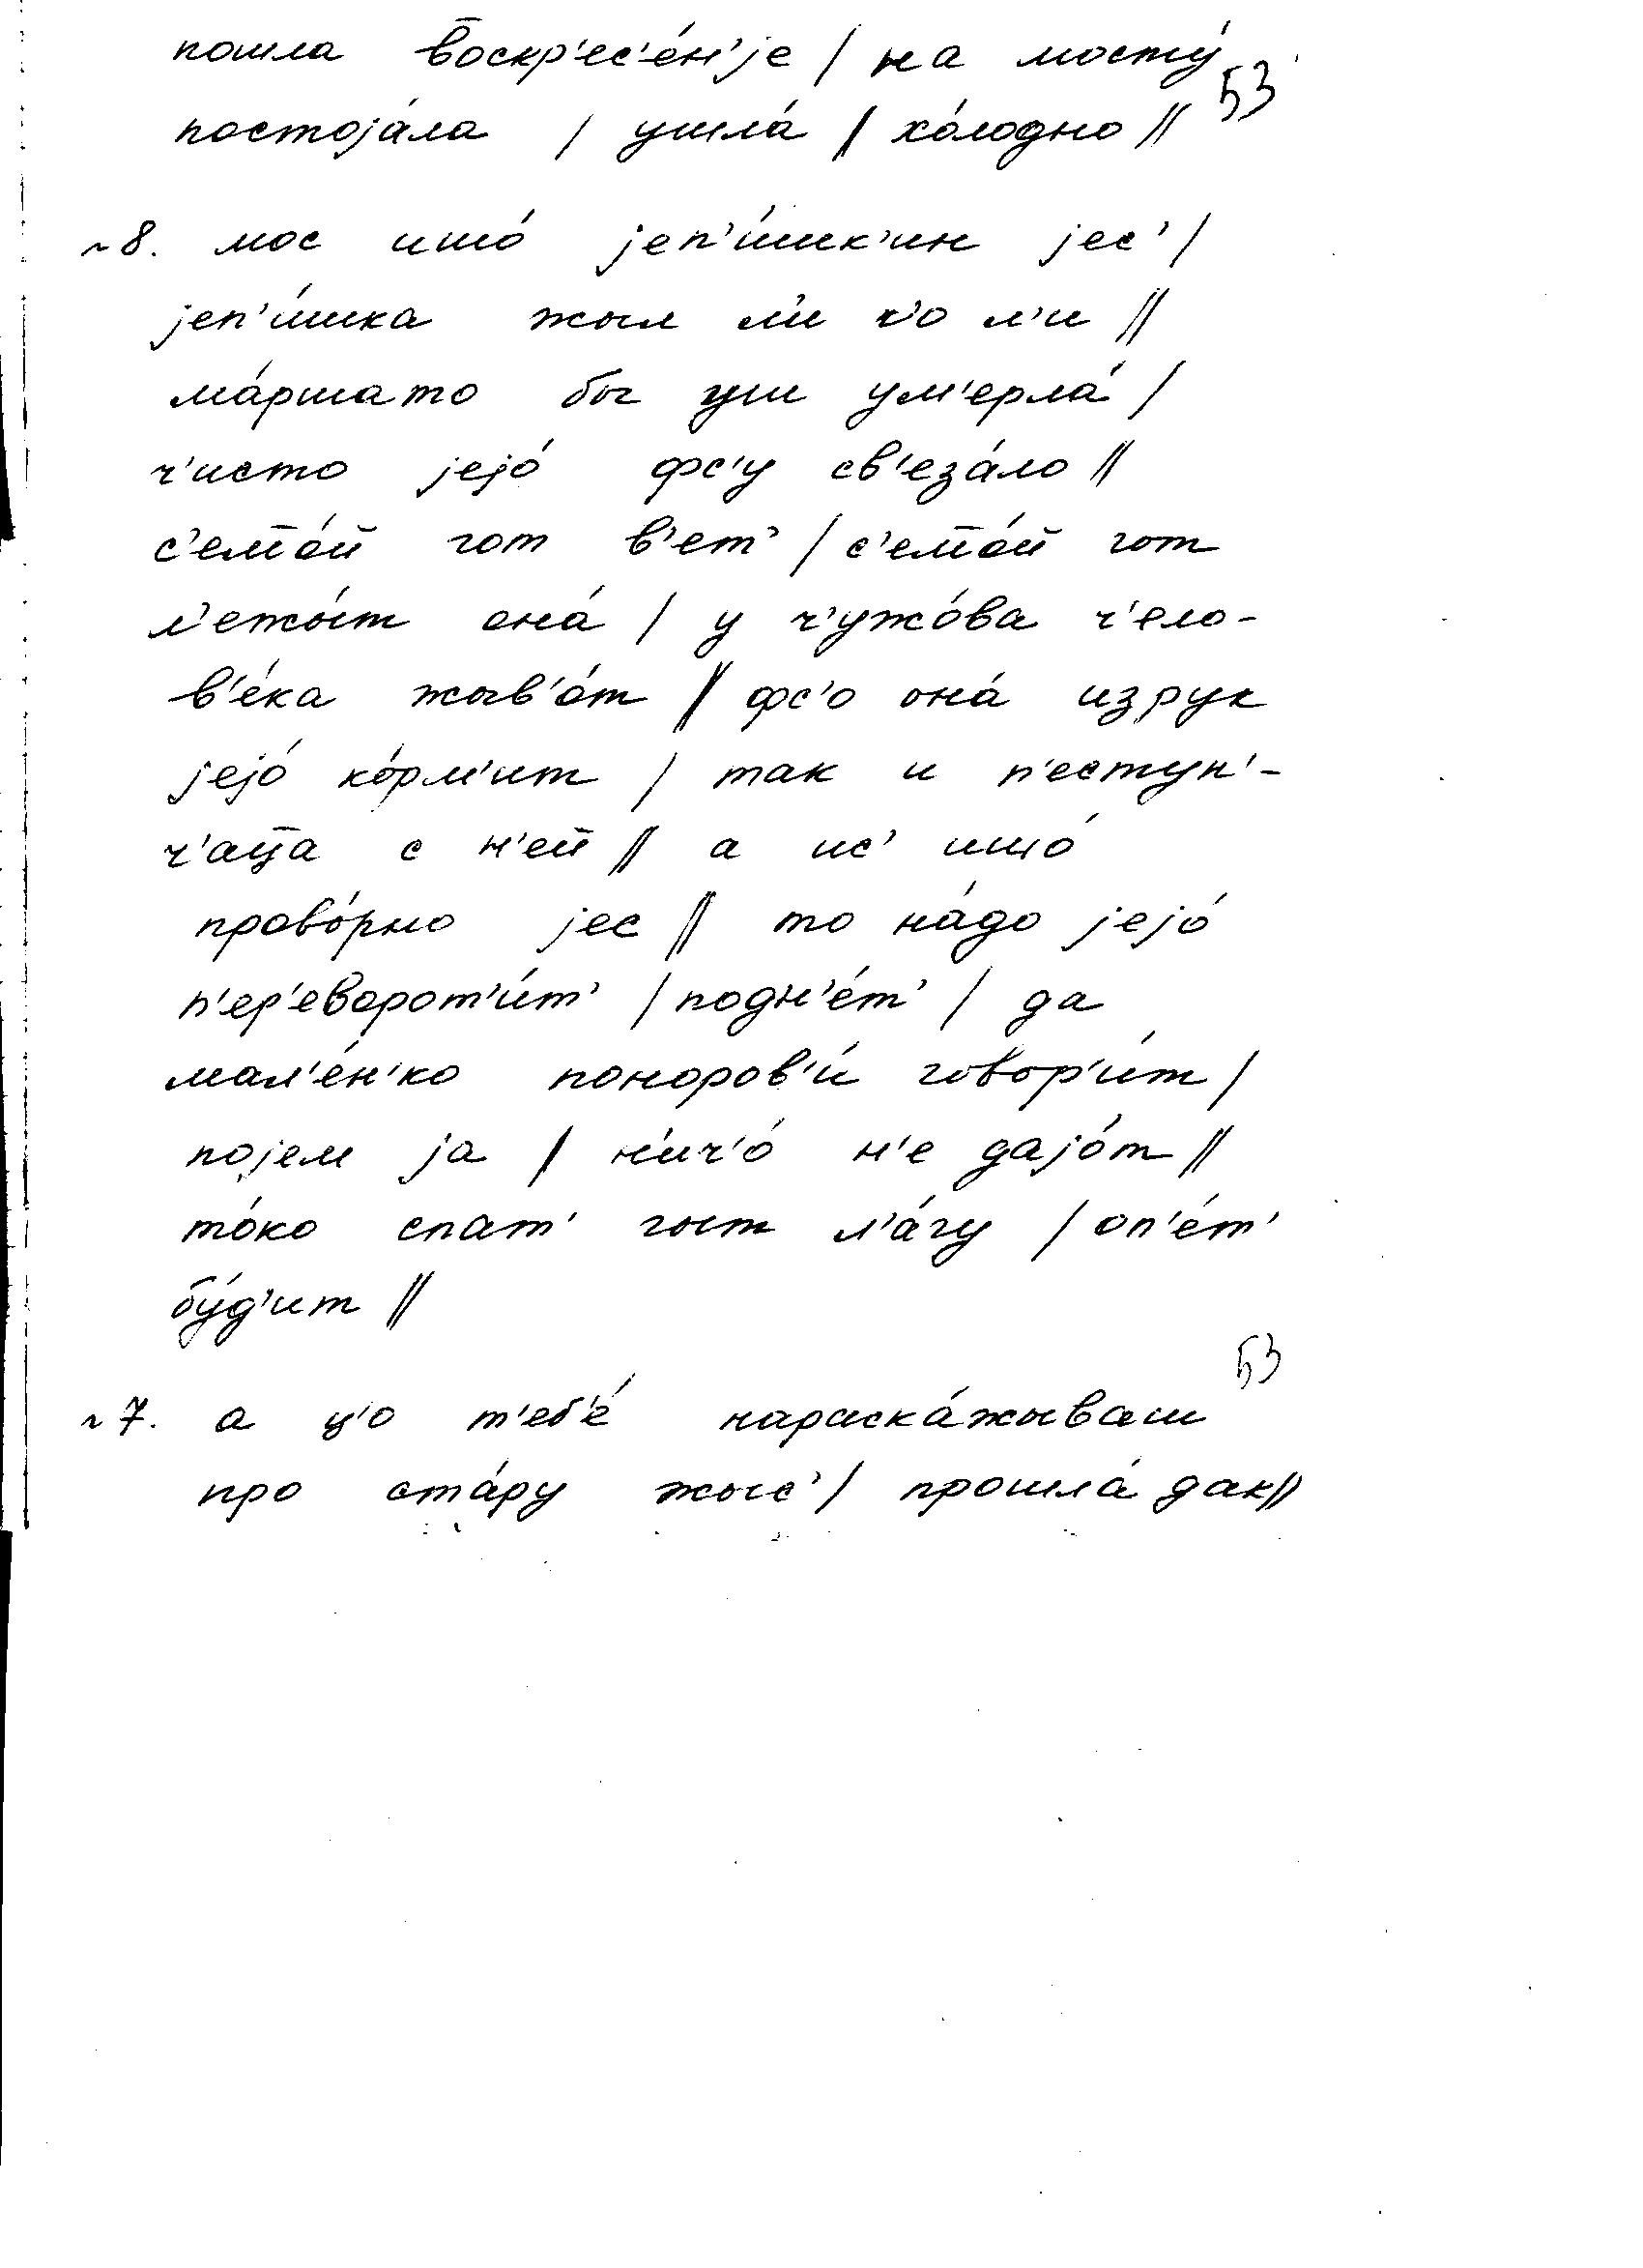 пошла в̄оскр'ес'е́н'је / на мосту́
53
постоја́ла / ушла́ // хо́лодно //
~8. мос ишо́ јеп'и́шк'ин јес' /
јеп'и́шка жыл л'и к'о л'и //
ма́ршато бы уш ум'ерла́ /
ч'исто јејо́ фс'у св'еза́ло //
с'ем̄о́й гот в'ет' / с'ем̄о́й гот
л'ежы́т она́ / у ч'ужо́ва ч'ело-
в'е́ка жыв'о́т // фс'о она́ изрук
јејо́ ко́рм'ит / так и п'естун'-
ч'ац̄а с н'ей // а ис' ишо́
прово́рно јес // то на́до јејо́
п'ер'еворот'и́т' / подн'е́т' / да
мал'е́н'ко поноров'и́ говор'и́т /
појем ја / н'ич'о́ н'е дајо́т //
то́ко спат' гыт л'а́гу / оп'е́т'
бу́д'ит //
53
~7. а ц'о т'еб'е́ нараска́жываш
про ста́ру жыс' / прошла́ дак //